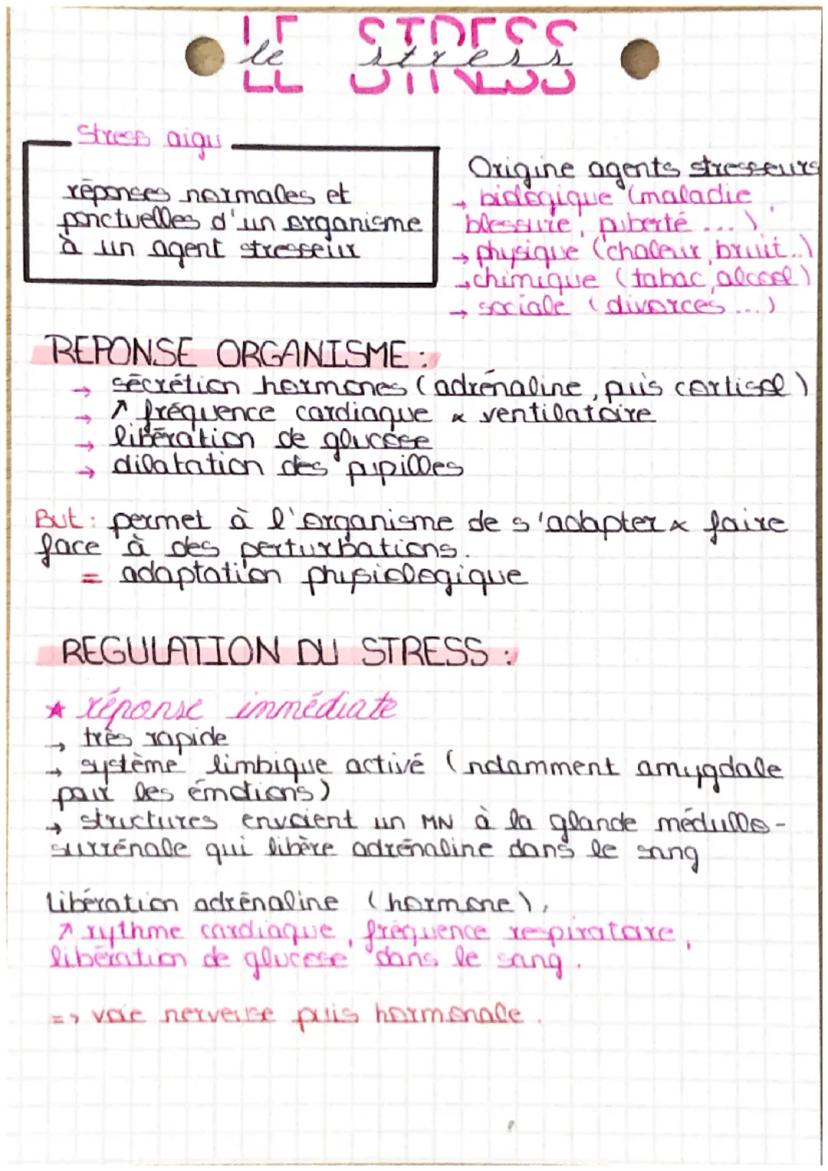 LE STRESS
le stress
Stress aigu
réponses normales et
ponctuelles d'un organisme
à un agent stresseur
Origine agents stresseurs
→ biologique (maladie,
blessure, puberté ...)
→ physique (chaleur, bruit..)
→ chimique (tabac, alcool)
→ sociale (divorces ...)
REPONSE ORGANISME :
→ sécrétion hormones (adrénaline, puis cortisol)
→ ↗ fréquence cardiaque & ventilatoire
→ libération de glucose
→ dilatation des pupilles
But : permet à l'organisme de s'adapter & faire
face à des perturbations.
= adaptation physiologique
REGULATION DU STRESS :
★ réponse immédiate
→ très rapide
→ système limbique activé (notamment amygdale
par les émotions)
→ structures envoient un MN à la glande médullo-
surrénale qui libère adrénaline dans le sang
Libération adrénaline (hormone),
↗ rythme cardiaque, fréquence respiratoire,
libération de glucose dans le sang.
=> voie nerveuse puis hormonale.